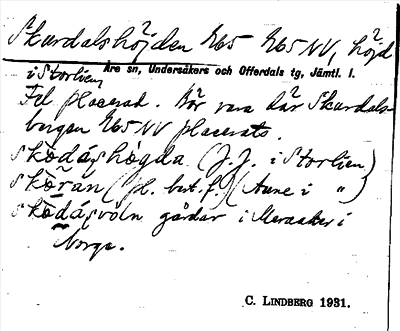 Skurdalshöjden 265 265 NV, höjd
i Storlien, Åre sn, Undersåkers och Offerdals tg, Jämtl. l.
Fel placerad. Bör vara där Skurdals-
bergen 265 NV placerats.
skōdáshögda (J.J. i Storlien)
skōran (pl. best. f.) (Aune i " )
skōdásvöln gårdar i Meraaker i
Norge.
C. LINDBERG 1931.